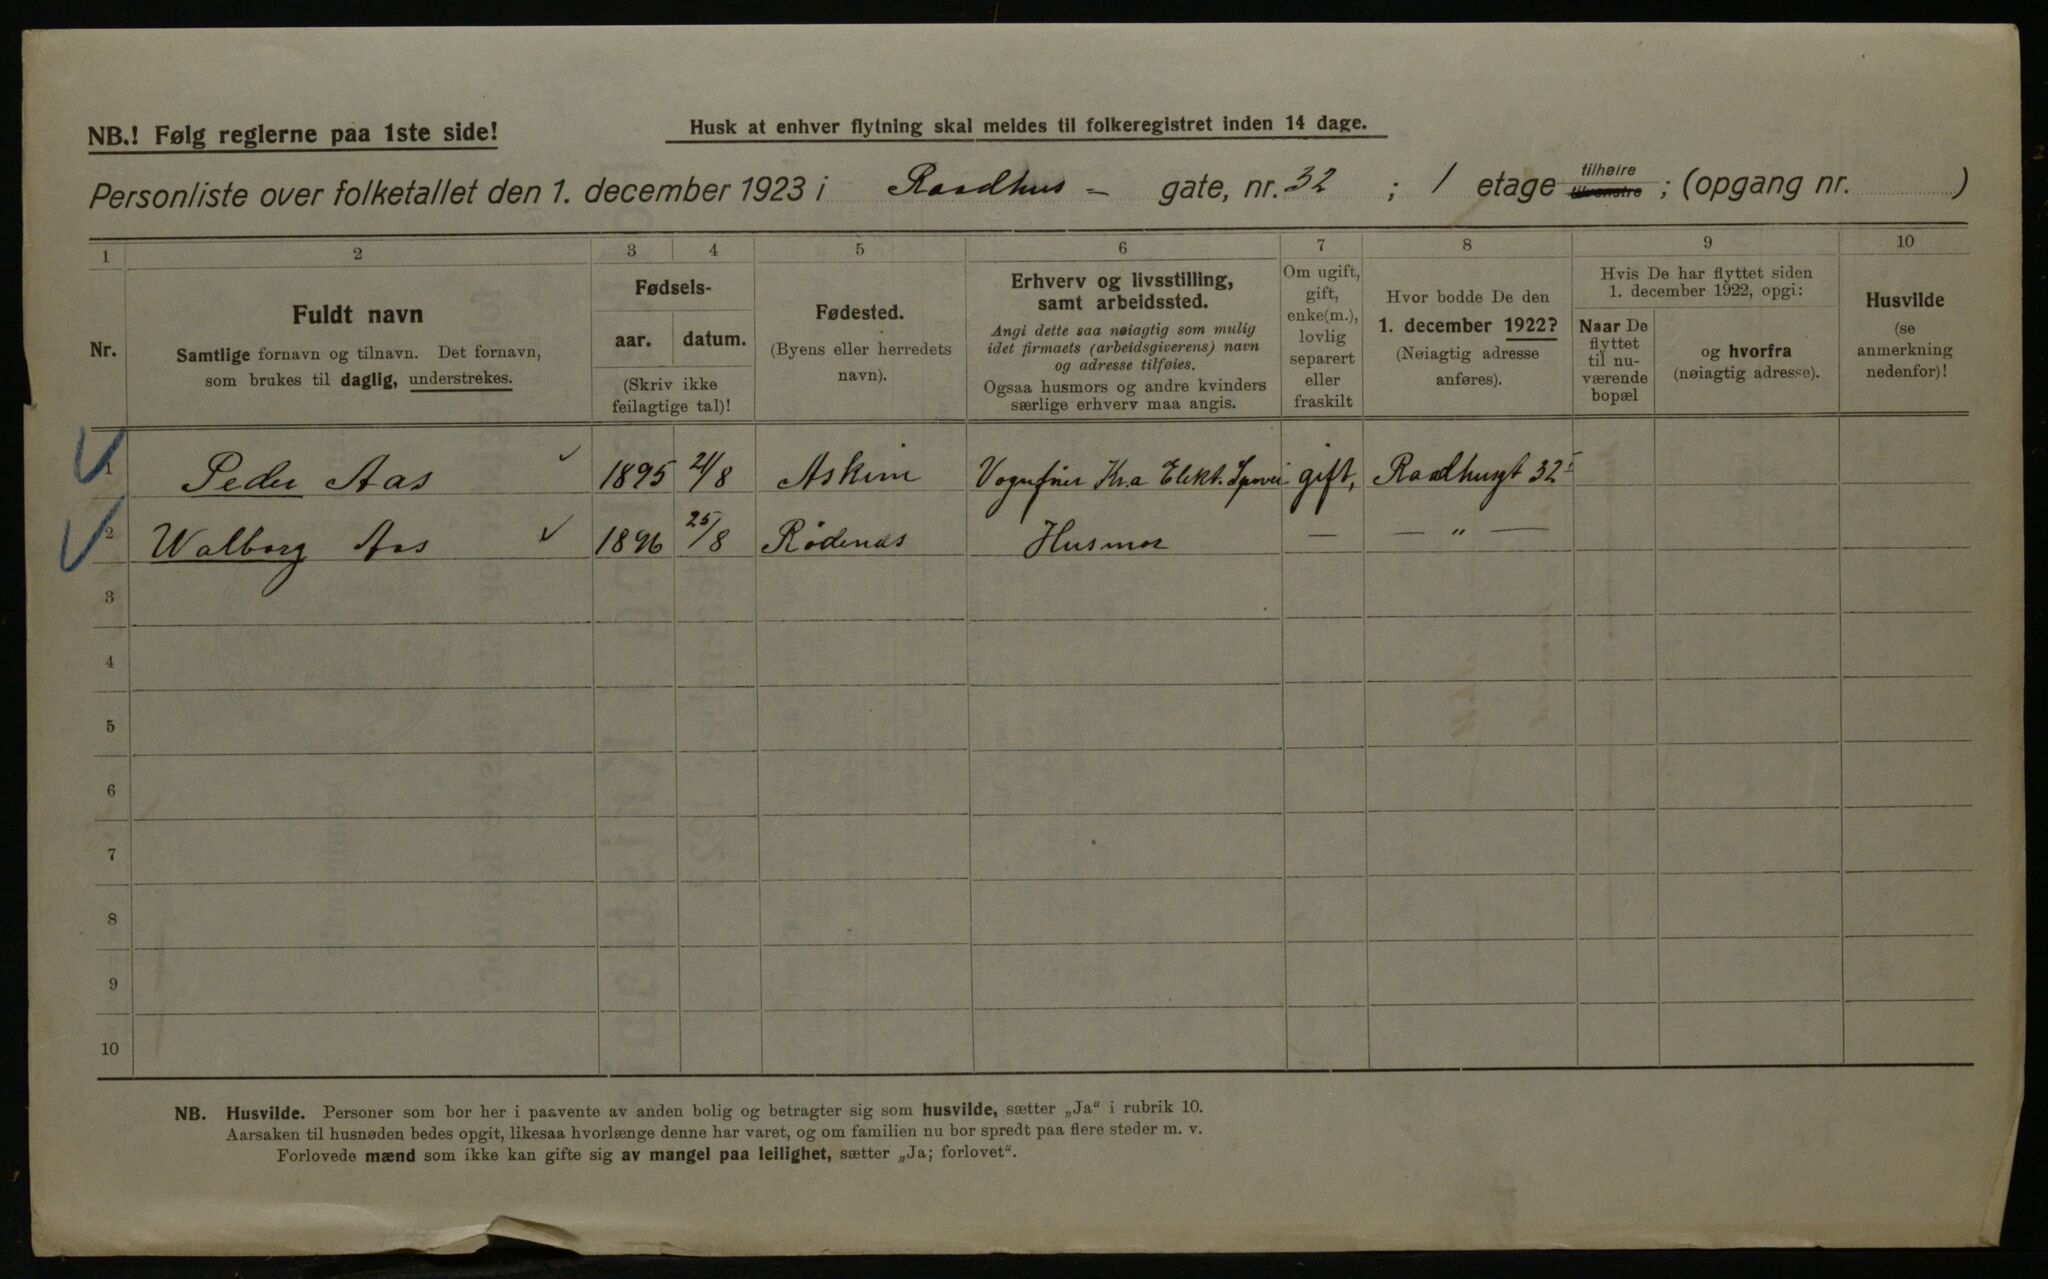 NB.! Følg reglerne paa 1ste side!
Husk at enhver flytning skal meldes til folkeregistret inden 14 dage.
Personliste over folketallet den 1. december 1923 i Raadhus - gate, nr. 32 ; 1 etage tilhøire tilvenstre ; (opgang nr. )
1 2 3 4 5 6 7 8 9 10
Nr.
Fuldt navn
Samtlige fornavn og tilnavn. Det fornavn,
som brukes til daglig, understrekes.
Fødsels-
aar. datum.
(Skriv ikke
feilagtige tal)!
Fødested.
(Byens eller herredets
navn).
Erhverv og livsstilling,
samt arbeidssted.
Angi dette saa nøiagtig som mulig
idet firmaets (arbeidsgiverens) navn
og adresse tilføies.
Ogsaa husmors og andre kvinders
særlige erhverv maa angis.
Om ugift,
gift,
enke(m.),
lovlig
separert
eller
fraskilt
Hvor bodde De den
1. december 1922?
(Nøiagtig adresse
anføres).
Hvis De har flyttet siden
1. december 1922, opgi:
Naar De
flyttet
til nu-
værende
bopæl
og hvorfra
(nøiagtig adresse).
Husvilde
(se
anmerkning
nedenfor)!
1 Peder Aas 1895 21/8 Askim Kr.a Elekt. Sporvei gift, Raadhusgt 32 I
2 Walborg Aas 1896 25/8 Rødenæs Husmor — — " —
3
4
5
6
7
8
9
10
NB. Husvilde. Personer som bor her i paavente av anden bolig og betragter sig som husvilde, sætter „Ja" i rubrik 10.
Aarsaken til husnøden bedes opgit, likesaa hvorlænge denne har varet, og om familien nu bor spredt paa flere steder m. v.
Forlovede mænd som ikke kan gifte sig av mangel paa leilighet, sætter „Ja; forlovet".